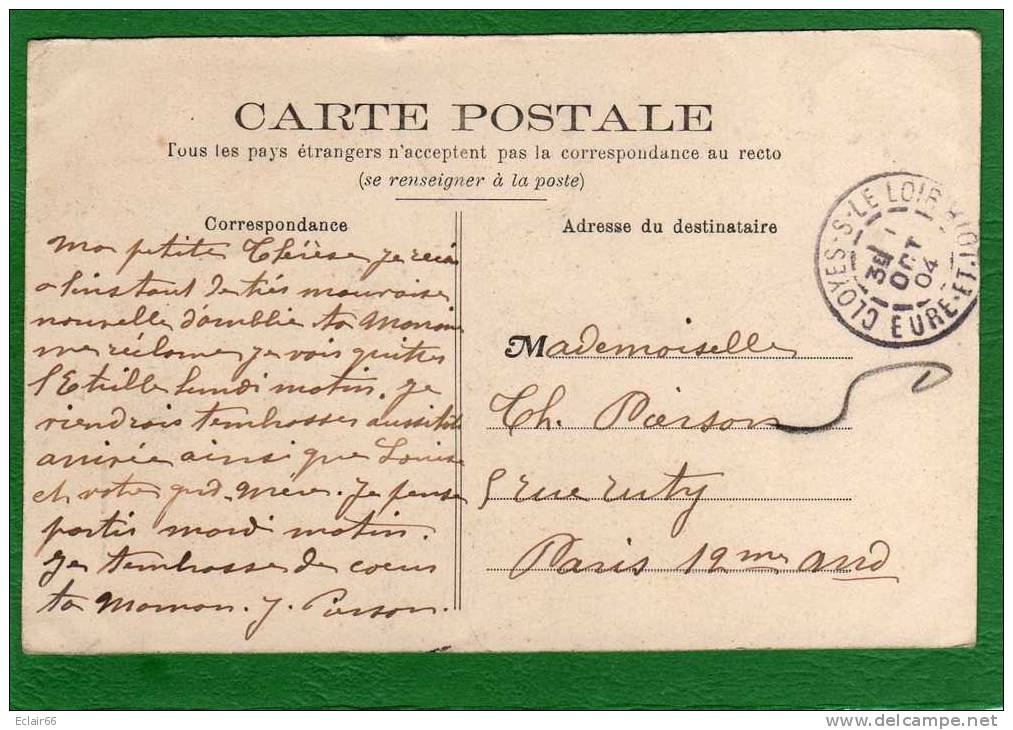 CARTE POSTALE
Tous les pays étrangers n'acceptent pas la correspondance au recto
(se renseigner à la poste)
Correspondance
Ma petite Thérèse je
a l'instant de très mauvaise
nouvelle d'amblie ta Marraine
me réclame je vais quitter
l'Etuille lundi matin. je
viendrais t'embrasser aussitôt
arrivée ainsi que Louise
et votre grd. Mère. Je pense
partir mardi matin.
Je t'embrasse de coeur
ta Maman. J. Pierson.
Adresse du destinataire
Mademoiselle
Th. Pierson
5 rue ruty
Paris 12me arrd
CLOYES-S-LE LOIR
EURE-ET-
3E
OCT
04
Eclair66
www.delcampe.net